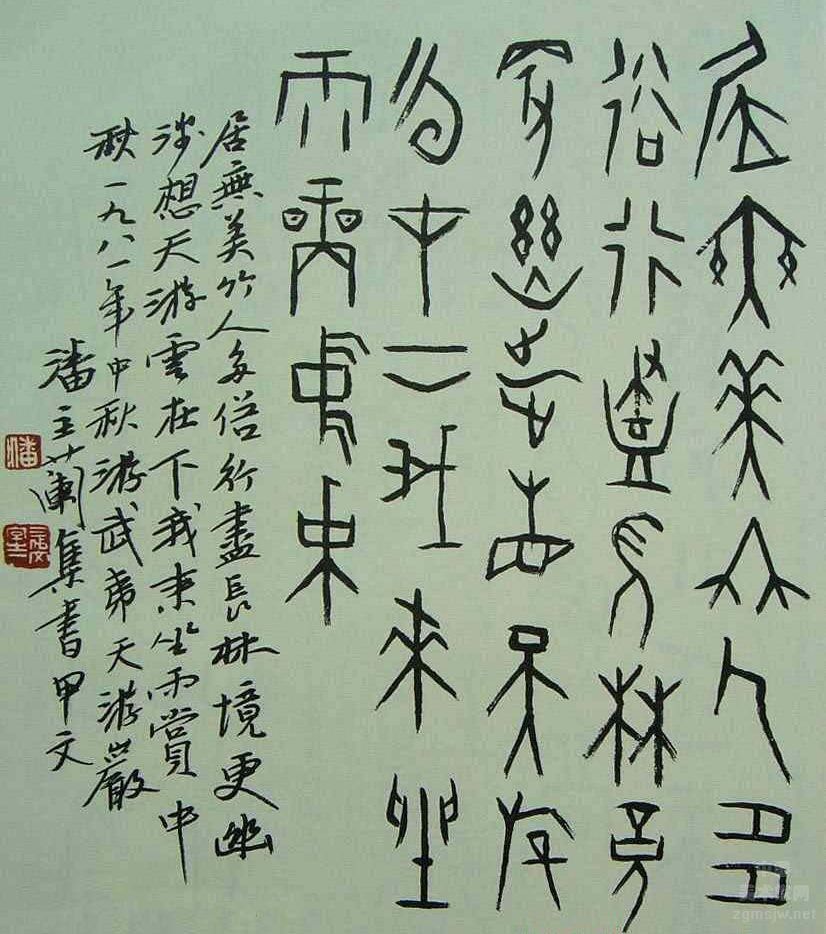 居無美竹人多
俗行盡長林境
更幽涉想天游
雲在下我來坐
雨賞中秋
居無美竹人多俗行盡長林境更幽
涉想天游雲在下我來坐雨賞中
秋一九八一年中秋游武夷天游巖
潘主蘭集書甲文
潘
中国
美术家网
zgmsjw.net